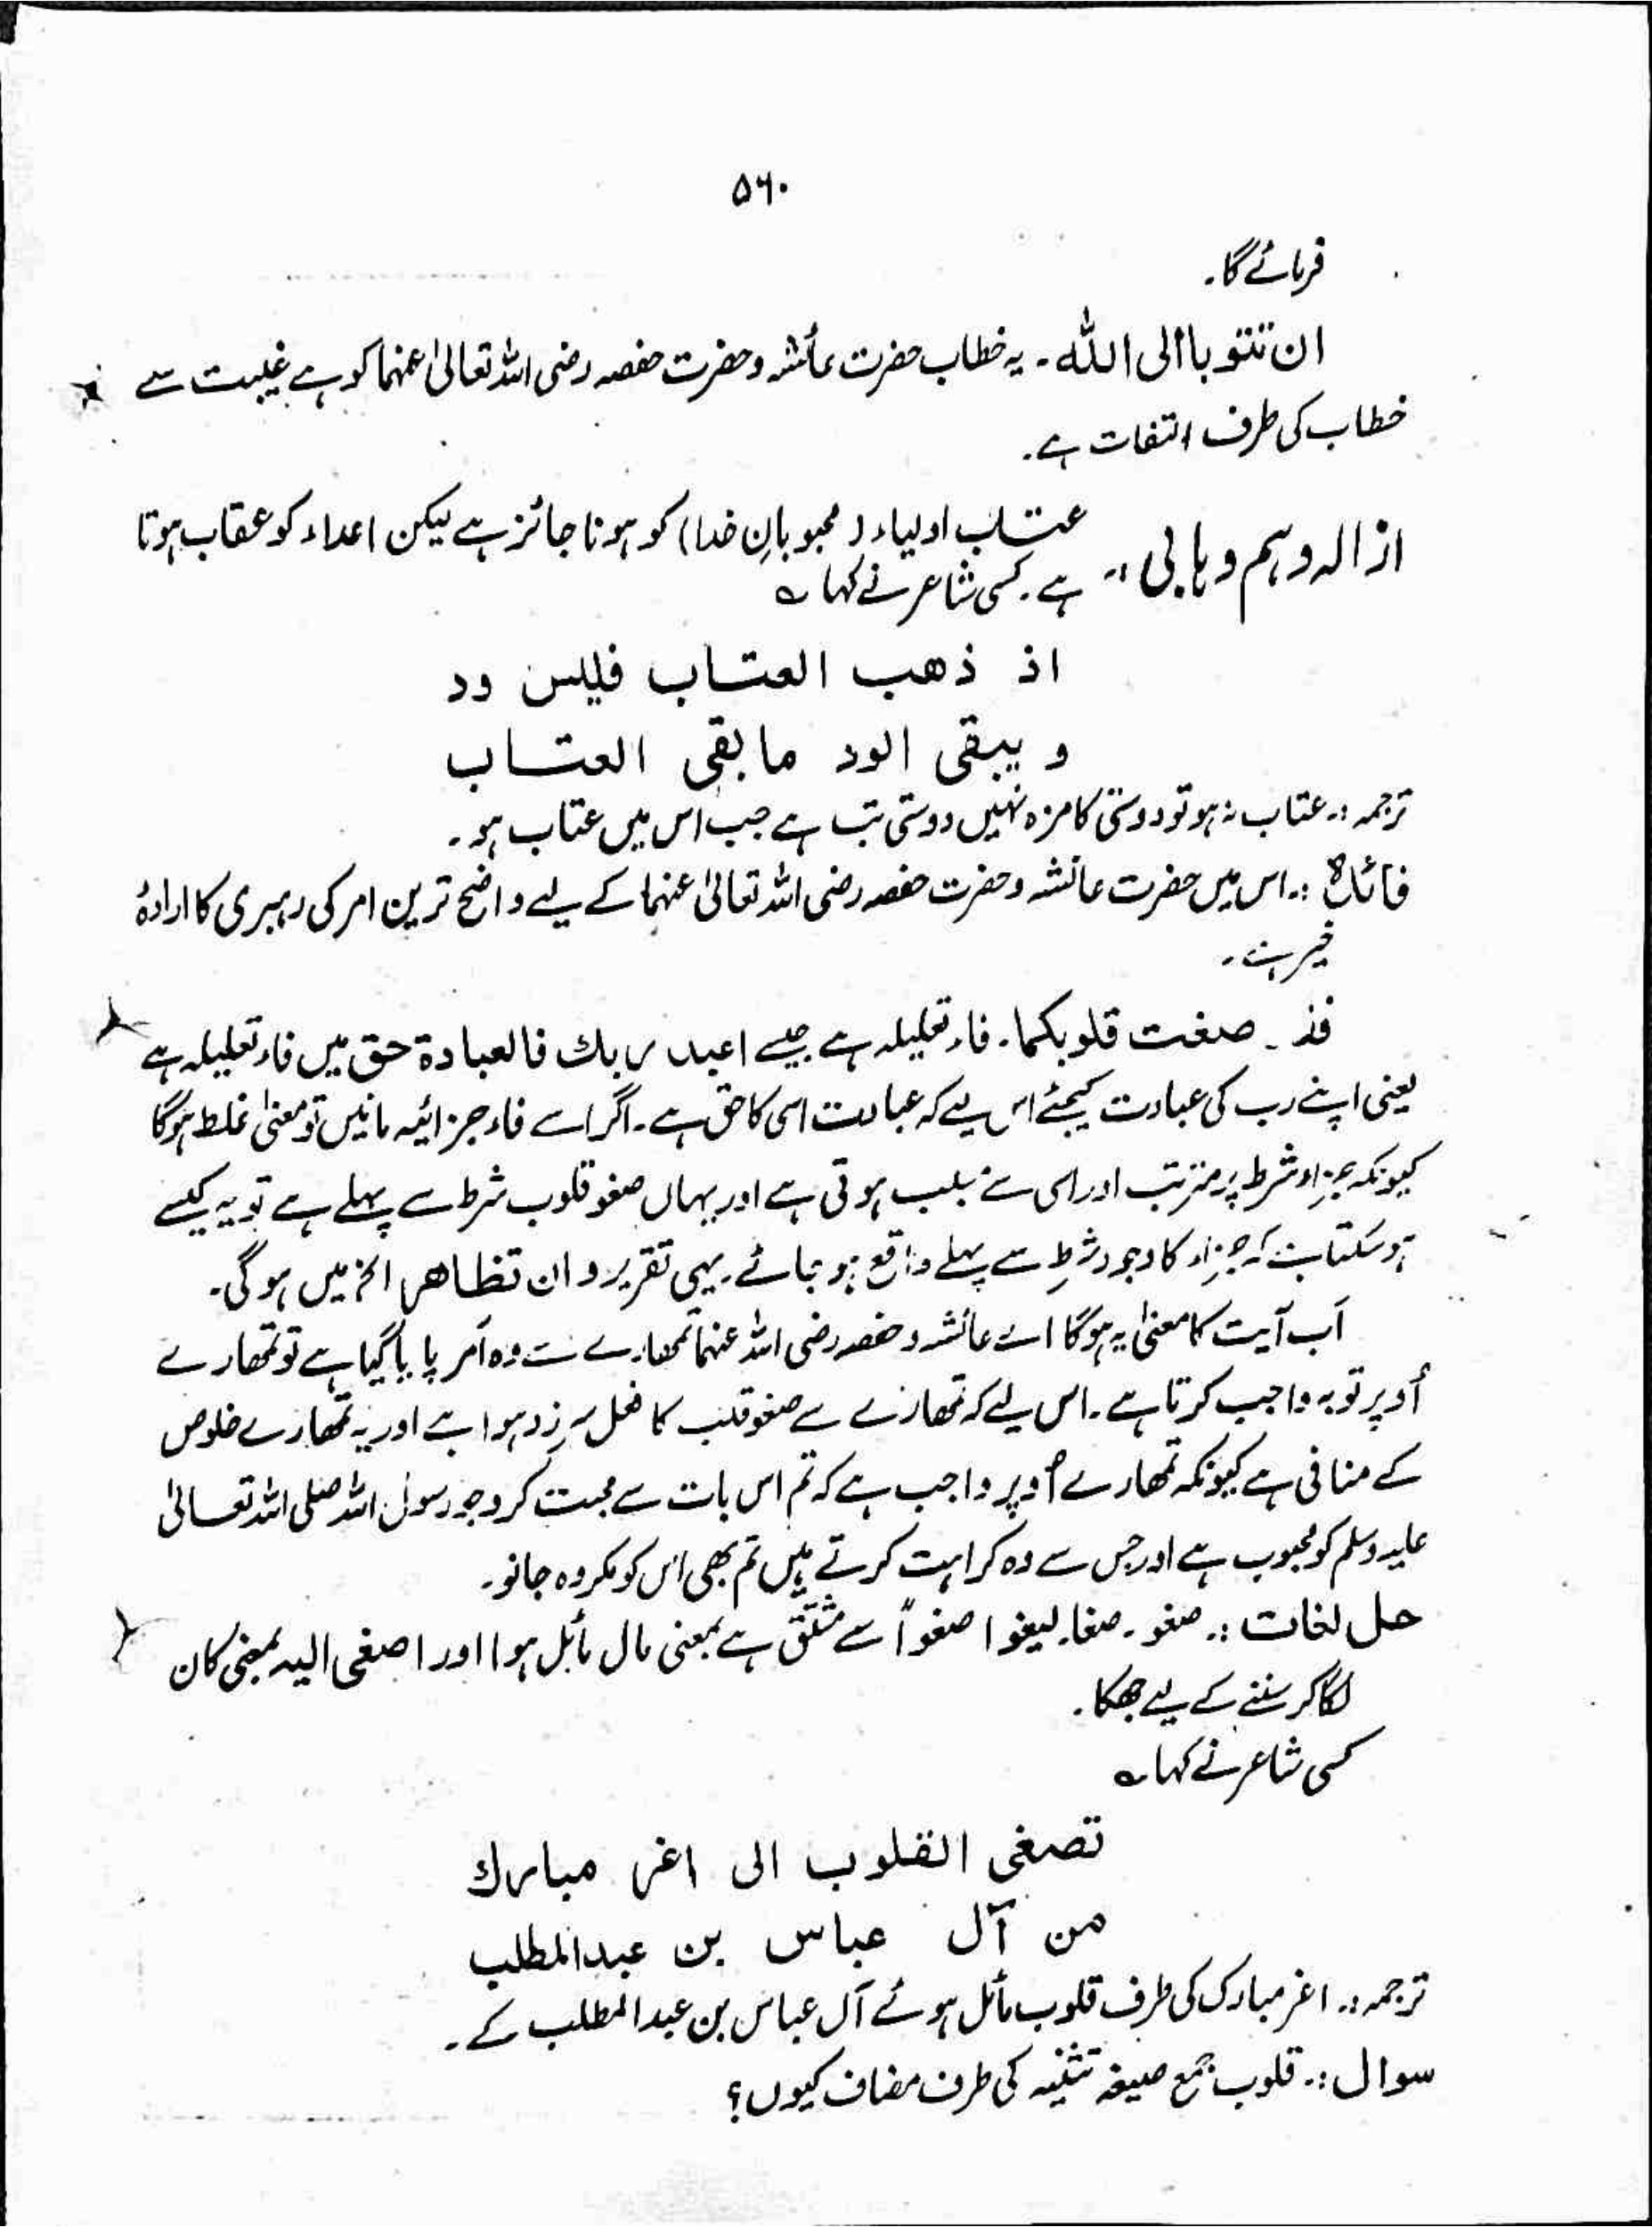 ۵۶۰
فرمائے گا۔
ان تتوبا الی اللہ۔ یہ خطاب حضرت عائشہ و حضرت حفصہ رضی اللہ تعالیٰ عنہما کو ہے غیبت سے
خطاب کی طرف التفات ہے۔
ازالہ وہم وہابی :۔ عتاب اولیاء (محبوبانِ خدا) کو ہونا جائز ہے لیکن اعداء کو عقاب ہوتا
ہے۔ کسی شاعر نے کہا ؎
اذ ذھب العتاب فلیس ود
و یبقی الود ما بقی العتاب
ترجمہ :۔ عتاب نہ ہو تو دوستی کا مزہ نہیں دوستی تب ہے جب اس میں عتاب ہو۔
فائدہ :۔ اس میں حضرت عائشہ و حضرت حفصہ رضی اللہ تعالیٰ عنہما کے لیے واضح ترین امر کی رہبری کا ارادۂ
خیر ہے۔
فقد صغت قلوبکما۔ فاء تعلیلہ ہے جیسے اعبد ربك فالعبادۃ حق میں فاء تعلیلہ ہے
یعنی اپنے رب کی عبادت کیجئے اس لیے کہ عبادت اسی کا حق ہے۔ اگر اسے فاء جزائیہ مانیں تو معنیٰ غلط ہوگا
کیونکہ جزاء شرط پر مترتب اور اسی سے سبب ہوتی ہے اور یہاں صغو قلوب شرط سے پہلے ہے تو یہ کیسے
ہو سکتا ہے کہ جزاء کا وجود شرط سے پہلے واقع ہو جائے۔ یہی تقریر و ان تظاھرا الخ میں ہوگی۔
اب آیت کا معنیٰ یہ ہوگا اے عائشہ و حفصہ رضی اللہ عنہما تمھارے سے وہ امر پایا گیا ہے تو تمھارے
اُوپر توبہ واجب کرتا ہے۔ اس لیے کہ تمھارے سے صغو قلب کا فعل سرزد ہوا ہے اور یہ تمھارے خلوص
کے منافی ہے کیونکہ تمھارے اُوپر واجب ہے کہ تم اس بات سے محبت کرو جو رسول اللہ صلی اللہ تعالیٰ
علیہ وسلم کو محبوب ہے اور جس سے وہ کراہت کرتے ہیں تم بھی اس کو مکروہ جانو۔
حل لغات :۔ صغو۔ صغا۔ لیغوا صغواً سے مشتق ہے بمعنی مال مائل ہوا اور اصغی الیہ بمعنی کان
لگا کر سننے کے لیے جھکا۔
کسی شاعر نے کہا ؎
تصغی القلوب الی اغر مبارك
من آل عباس بن عبدالمطلب
ترجمہ :۔ اغر مبارک کی طرف قلوب مائل ہوئے آل عباس بن عبدالمطلب کے۔
سوال :۔ قلوب جمع صیغہ تثنیہ کی طرف مضاف کیوں؟